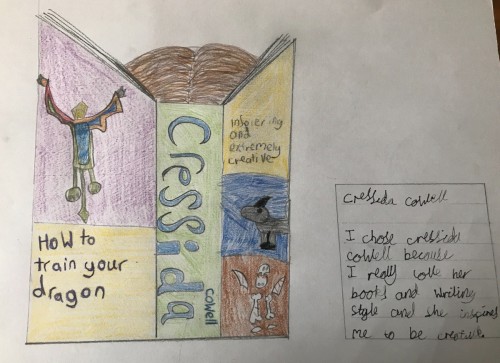 How to
train your
dragon
Cressida
Cowell
inspiering
and
extremely
creative
Cressida Cowell
I chose cressida
cowell because
I really love her
books and writing
style and she inspires
me to be creative.